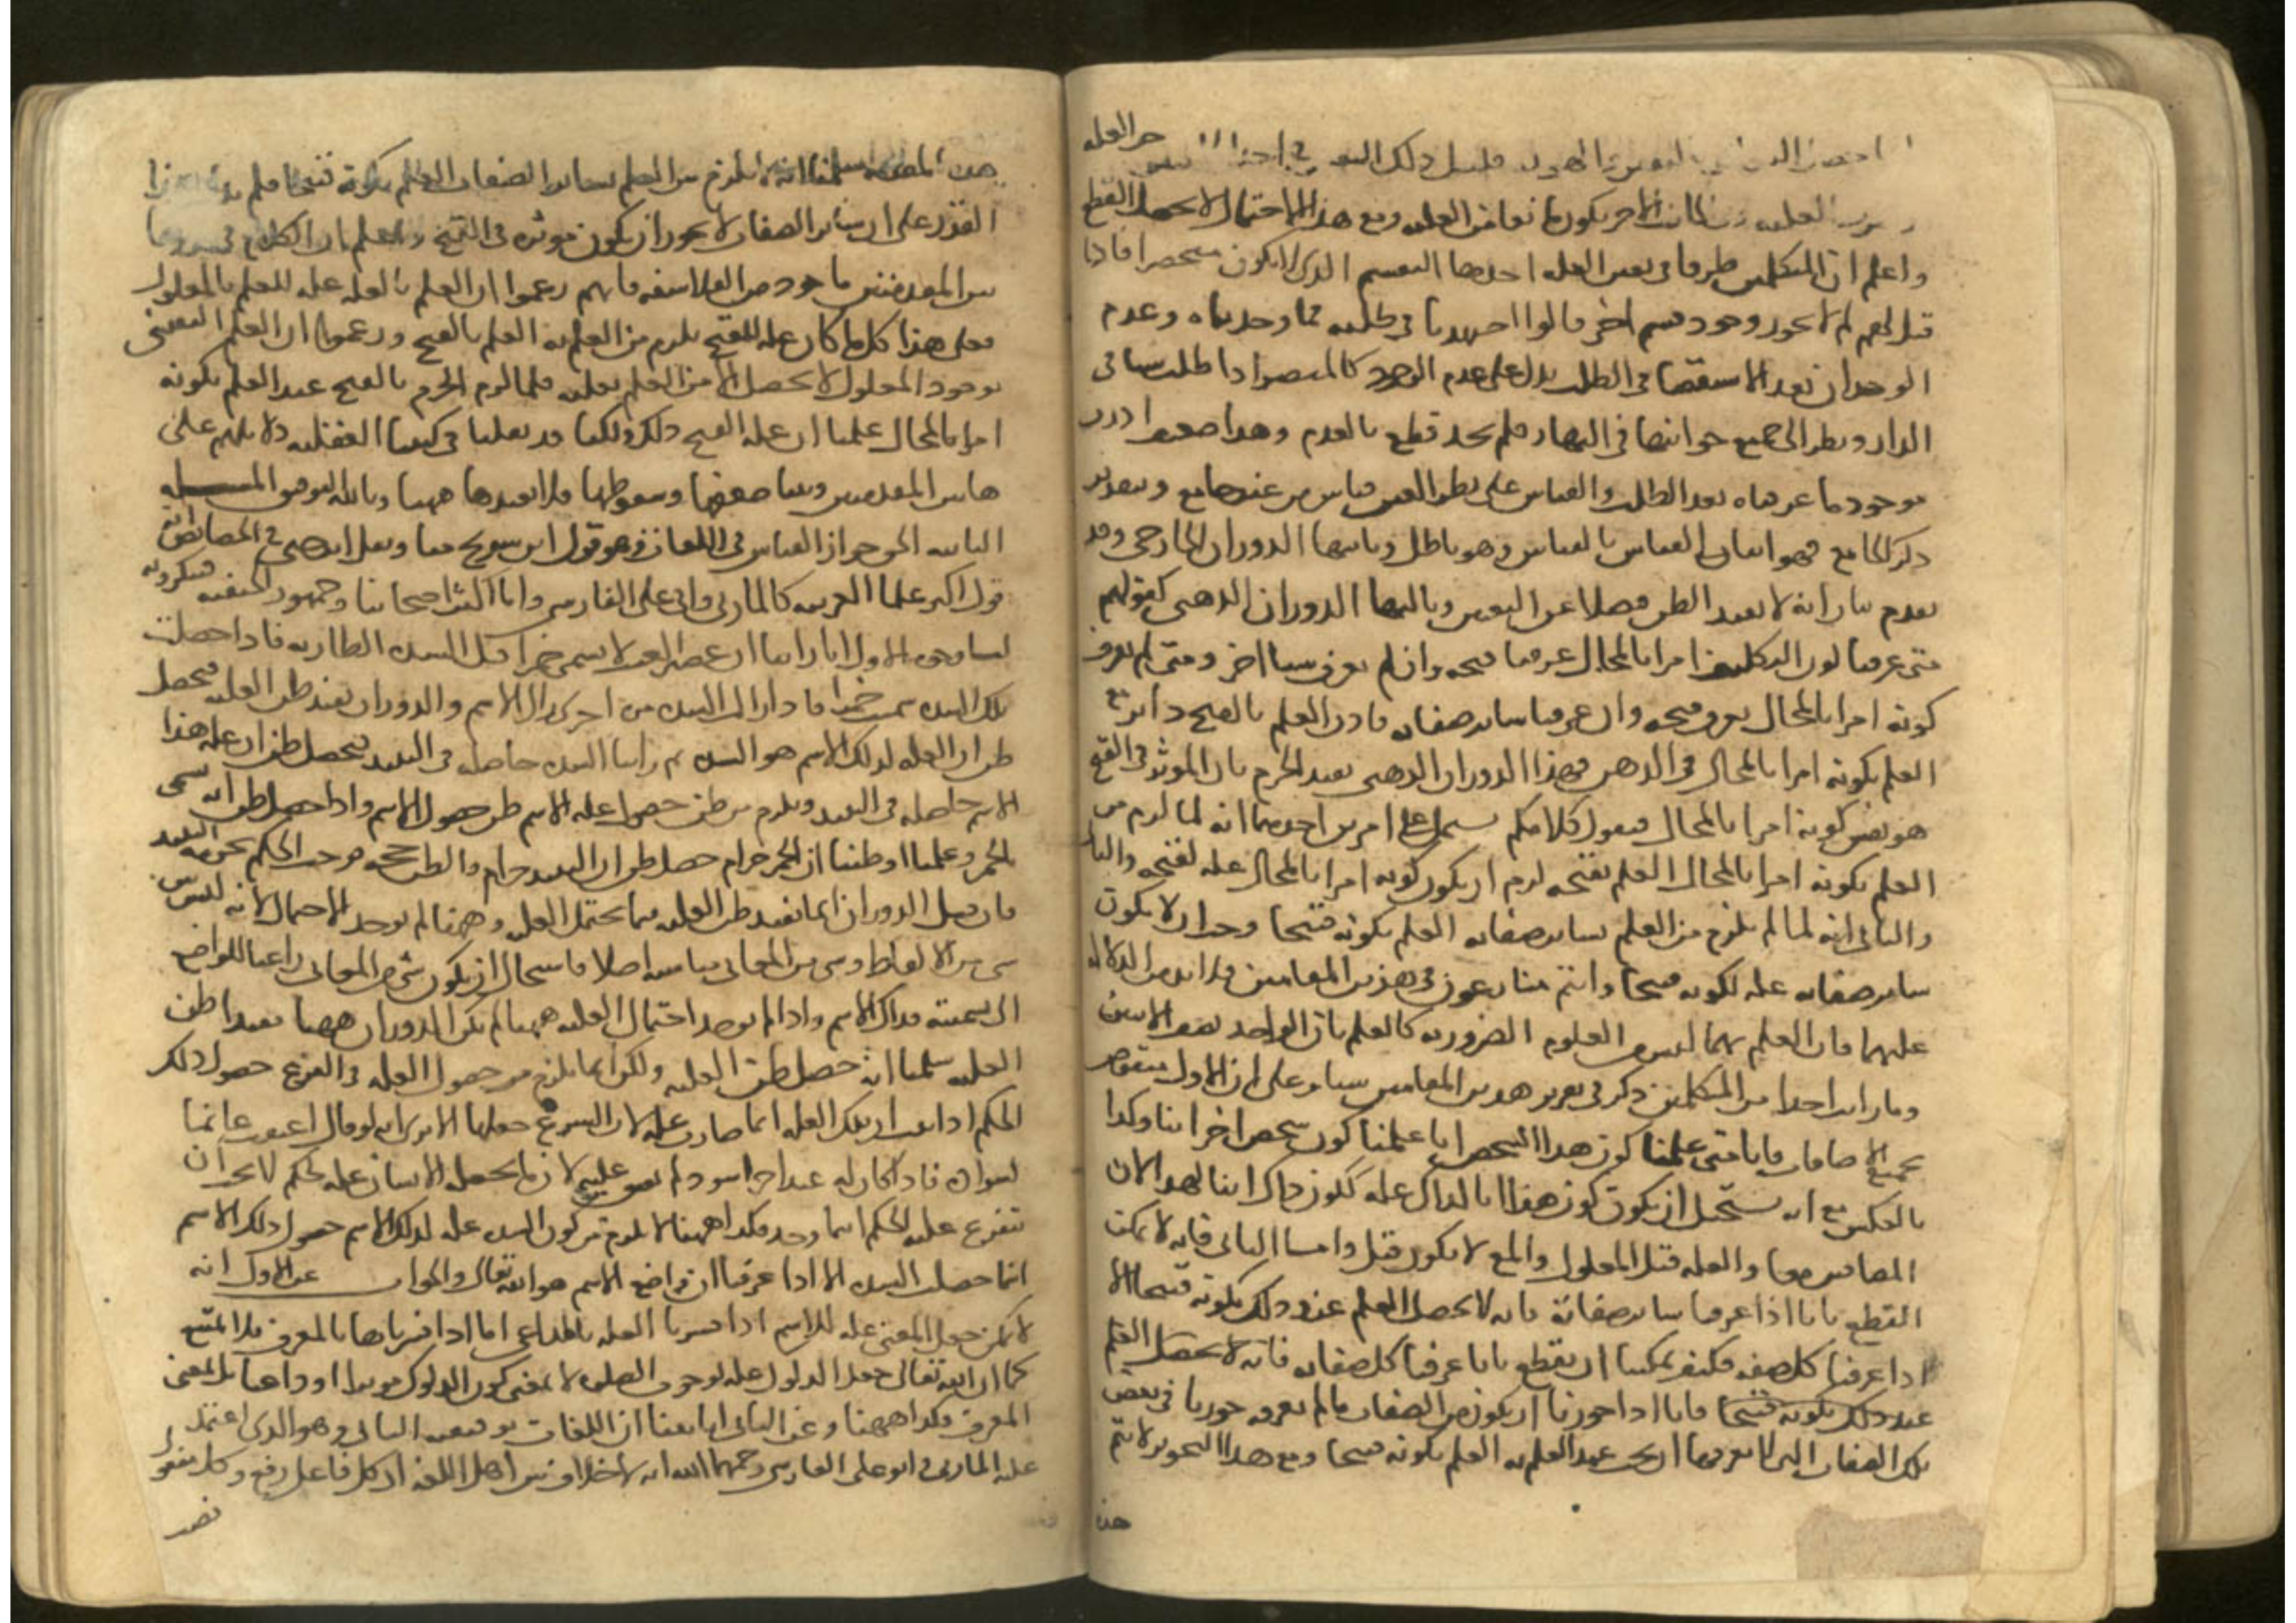 حد العله
واعلم ان للمتكلمين طرقا فى تعيين العله احدها التقسيم الذى لا يكون منحصرا فاذا
قيل لهم لم لا يجوز وجود قسم اخر قالوا اجتهدنا فى طلبه فما وجدناه وعدم
الوجدان بعد الاستقصا فى الطلب يدل على عدم الوجود كالمبصر اذا طلب شيا فى
الدار ونظر الى جميع جوانبها فى النهار فلم يجد قطع بالعدم وهذا ضعيف
موجود ما عرفناه بعد الطلب والقياس على نظر العين قياس من غير جامع وبتقدير
ذكر الجامع فهو اثبات القياس بالقياس وهو باطل وثانيها الدوران الخارجى وقد
تقدم بيان انه لا يفيد الظن فضلا عن اليقين وثالثها الدوران الذهنى كقولهم
متى عرفنا كون التكليف امرا بالمحال عرفنا قبحه وان لم نعرف شيا اخر ومتى لم نعرف
كونه امرا بالمحال لم نعرف قبحه وان عرفنا ساير صفاته فاذن العلم بالقبح داير مع
العلم بكونه امرا بالمحال فى الذهن فهذا الدوران الذهنى يفيد الجزم بان الموثر فى القبح
هو نفس كونه امرا بالمحال فنقول كلامكم يشتمل على امرين احدهما انه لما لزم من
العلم بكونه امرا بالمحال العلم بقبحه لزم ان يكون كونه امرا بالمحال عله لقبحه
والثانى انه لما لم يلزم من العلم بساير صفاته العلم بكونه قبيحا وجب ان لا يكون
ساير صفاته عله لكونه قبيحا وانتم منازعون فى هذين المقامين فلا بد من الدلاله
عليهما فان العلم بهما ليس من العلوم الضروريه كالعلم بان الواحد نصف الاثنين
وما رايت احدا من المتكلمين ذكر فى تقرير هذين المقامين شيا وعلى ان الاول منقوض
بجميع الاضافات فانا متى علمنا كون هذا الشخص ابا علمنا كون شخص اخر ابنا وكذا
بالعكس مع انه يستحيل ان يكون كون هذا ابا لذاك عله لكون ذاك ابنا لهذا لان
المضافين معا والعله قبل المعلول والمع لا يكون قبل واما الثانى فانه لا يمكن
القطع بانا اذا عرفنا ساير صفاته فانه لا يحصل العلم عند ذلك بكونه قبيحا الا
اذا عرفنا كل صفه فكيف يمكننا ان نقطع بانا عرفنا كل صفاته فانه لا يحصل العلم
عند ذلك بكونه قبيحا فانا اذا جوزنا ان يكون من الصفات ما لم نعرفه جوزنا فى بعض
تلك الصفات التى لا نعرفها ان يجب عند العلم به العلم بكونه قبيحا ومع هذا التجويز لا يتم
هذه
هذه المقدمه سلمنا انه لم يلزم من العلم بساير الصفات العلم بكونه قبيحا فلم
القدر على ان ساير الصفات لا يجوز ان يكون موثره فى القبح واعلم ان الكلام فى
هاتين المقدمتين ماخوذ من الفلاسفه فانهم زعموا ان العلم بالعله عله للعلم بالمعلول
فعلى هذا كل ما كان عله للقبح يلزم من العلم به العلم بالقبح وزعموا ان العلم اليقينى
بوجود المعلول لا يحصل الا من العلم بعلته فلما لزم الجزم بالقبح عند العلم بكونه
امرا بالمحال علمنا ان عله القبح ذلك ولكنا قد نقلنا فى كتبنا العقليه دلايلهم على
هاتين المقدمتين وبينا ضعفها وسقوطها فلا نعيدها ههنا وبالله التوفيق المسله
الثانيه الحق جواز القياس فى اللغات وهو قول ابن سريج منا ونقل ابن جنى فى الخصايص انه
قول اكثر علما العربيه كالمازنى وابى على الفارسى واما اكثر اصحابنا وجمهور الحنفيه فينكرونه
لنا وجوه الاول انا راينا ان عصير العنب لا يسمى خمرا قبل الشده الطاريه فاذا حصلت
تلك الشده سمى خمرا فاذا زالت الشده مره اخرى زال الاسم والدوران يفيد ظن العليه فيحصل
ظن ان العله لذلك الاسم هو الشده ثم راينا الشده حاصله فى النبيذ فيحصل ظن ان عله هذا
الاسم حاصله فى النبيذ ويلزم من ظن حصول عله الاسم ظن حصول الاسم واذا حصل ظن انه يسمى
بالخمر وعلمنا او ظننا ان الخمر حرام حصل ظن ان النبيذ حرام والظن حجه فوجب الحكم بحرمه النبيذ
فان قيل الدوران انما يفيد ظن العليه فيما يحتمل العليه وههنا لم يوجد الاحتمال لانه ليس بين
شى من الالفاظ وشى من المعانى مناسبه اصلا فاستحال ان يكون شى من المعانى داعيا للواضع
الى تسميته بذاك الاسم واذا لم يوجد احتمال العليه ههنا لم يكن الدوران ههنا مفيدا ظن
العليه سلمنا انه حصل ظن العليه ولكن انما يلزم من حصول العله فى الفرع حصول ذلك
الحكم اذا ثبت ان تلك العله انما صارت عله لان الشرع جعلها الا ترى انه لو قال اعتقت غانما
لسواده فاذا كان له عبد اخر اسود لم يعتق عليه لان ما يجعله الانسان عله لحكم لا يجب ان
يتفرع عليه الحكم اينما وجد فكذا ههنا لا يلزم من كون الشده عله لذلك الاسم حصول ذلك الاسم
اينما حصلت الشده الا اذا عرفنا ان واضع الاسم هو الله تعالى والجواب عن الاول انه
لا يمكن جعل المعنى عله للاسم اذا فسرنا العله بالداعى اما اذا فسرناها بالمعرف فلا يمتنع
كما ان الله تعالى جعل الدلوك عله لوجوب الصلوه لا بمعنى كون الدلوك موثرا او داعيا بل بمعنى
المعرف فكذا ههنا وعن الثانى انا بينا ان اللغات توقيفيه الثانى وهو الذى اعتمد
عليه المازنى وابو على الفارسى رحمهما الله انه لا خلاف بين اهل اللغه ان كل فاعل رفع وكل مفعول
نصب